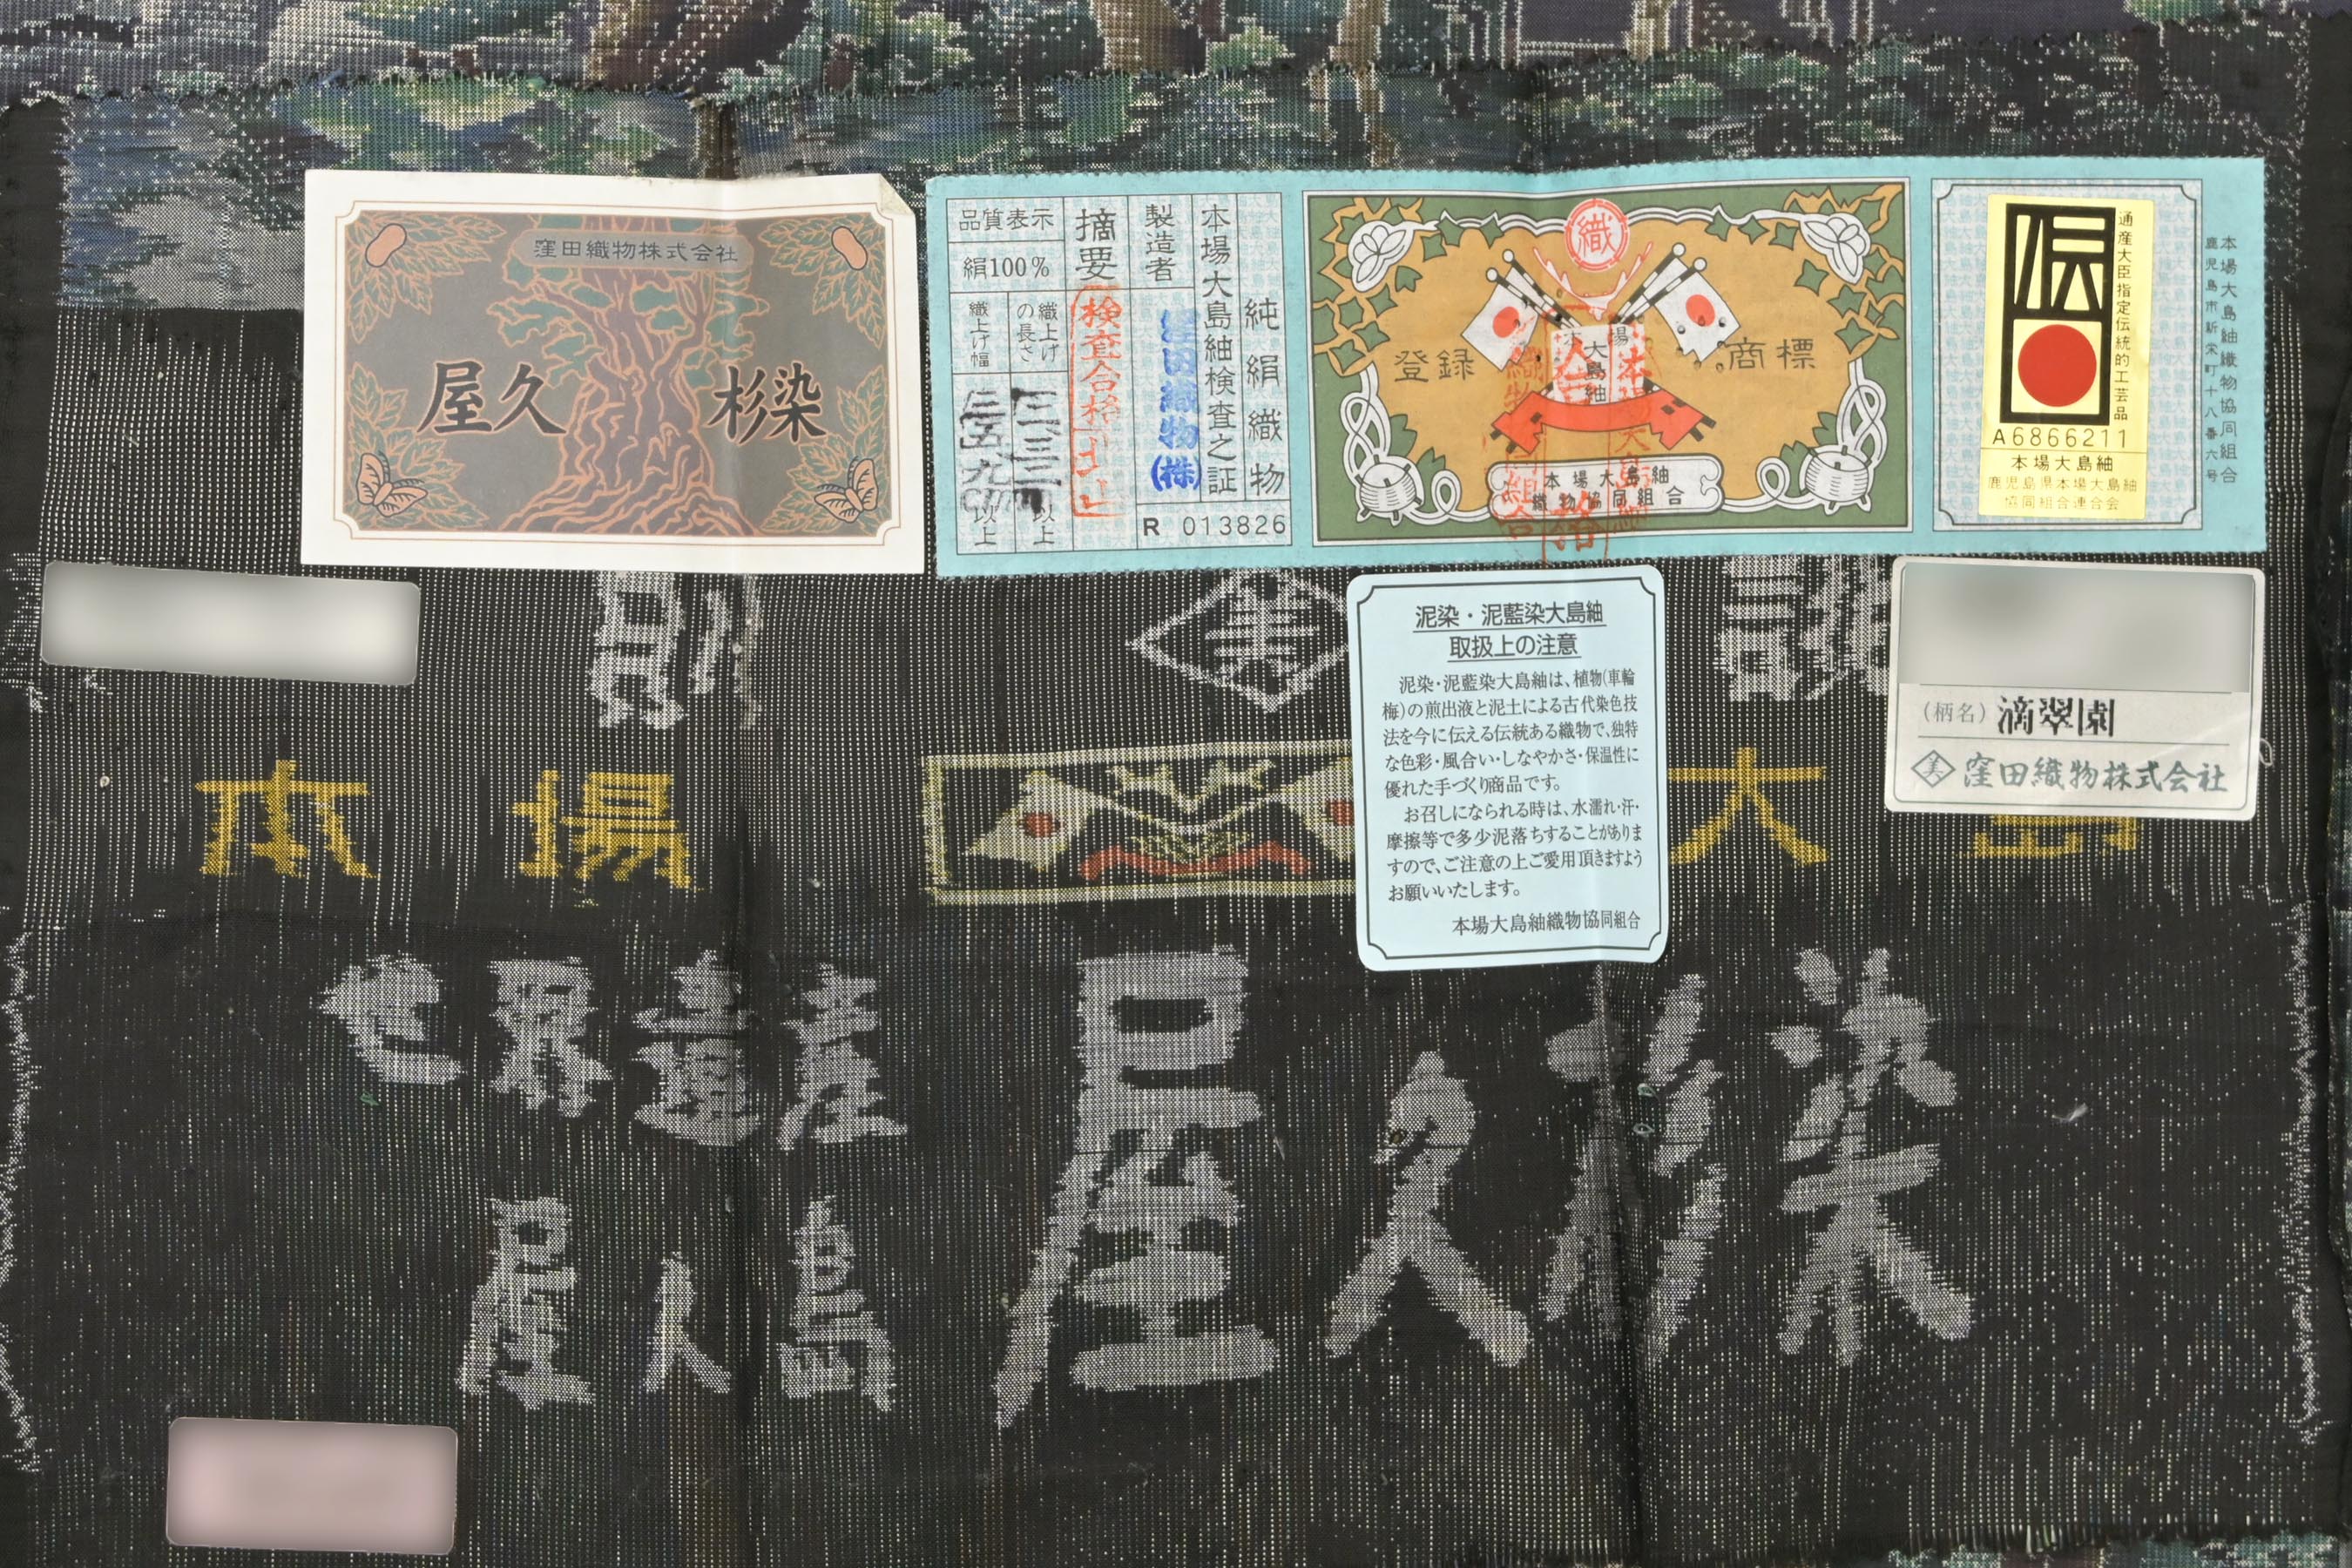 窪田織物株式会社
屋久 杉染
品質表示
絹100%
織上げ幅
以上
織上げの長さ
以上
摘要
検査合格
製造者
窪田織物(株)
本場大島紬検査之証
純絹織物
R 013826
織
登録 商標
本場
大島紬
本場大島紬
織物協同組合
通産大臣指定伝統的工芸品
伝
A6866211
本場大島紬
鹿児島県本場大島紬
協同組合連合会
本場大島紬織物協同組合
鹿児島市新栄町十八番六号
泥染・泥藍染大島紬
取扱上の注意
泥染・泥藍染大島紬は、植物(車輪
梅)の煎出液と泥土による古代染色技
法を今に伝える伝統ある織物で、独特
な色彩・風合い・しなやかさ・保温性に
優れた手づくり商品です。
お召しになられる時は、水濡れ・汗・
摩擦等で多少泥落ちすることがありま
すので、ご注意の上ご愛用頂きますよう
お願いいたします。
本場大島紬織物協同組合
(柄名) 滴翠園
美 窪田織物株式会社
別 美 誂
本場 大島
世界遺産
屋久島
屋久杉染